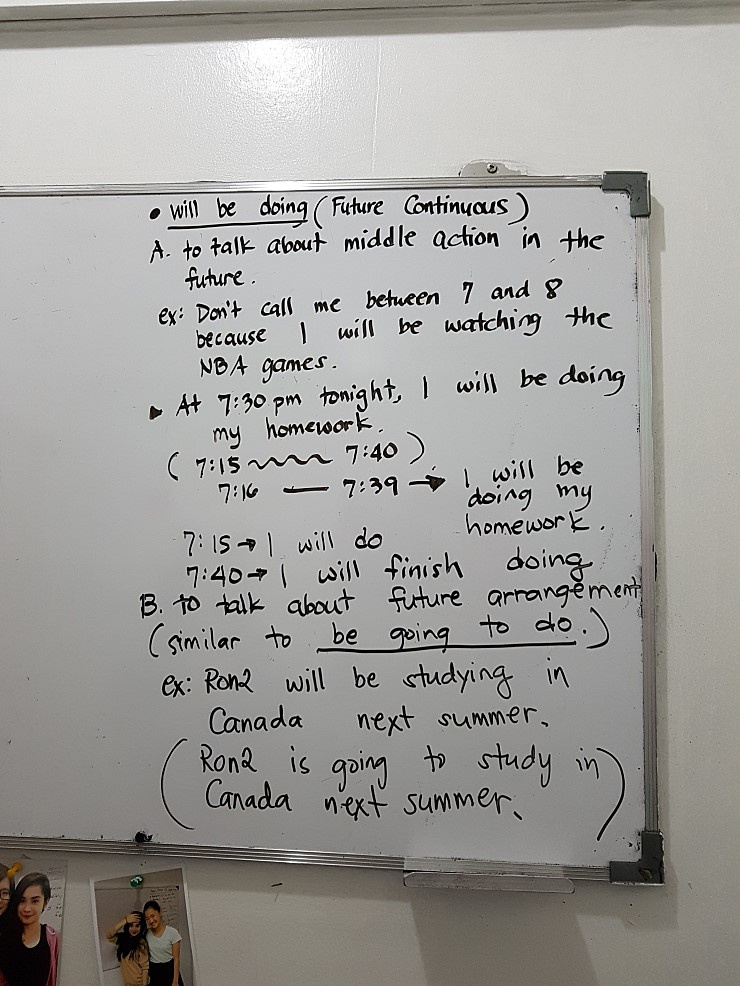 • will be doing (Future Continuous)
A. to talk about middle action in the
future.
ex: Don't call me between 7 and 8
because I will be watching the
NBA games.
▸ At 7:30 pm tonight, I will be doing
my homework.
( 7:15 ~~~ 7:40 )
7:16 — 7:39 → I will be
doing my
homework.
7:15 → I will do
7:40 → I will finish doing
B. to talk about future arrangement
(similar to be going to do.)
ex: Ron2 will be studying in
Canada next summer.
(Ron2 is going to study in
Canada next summer.)